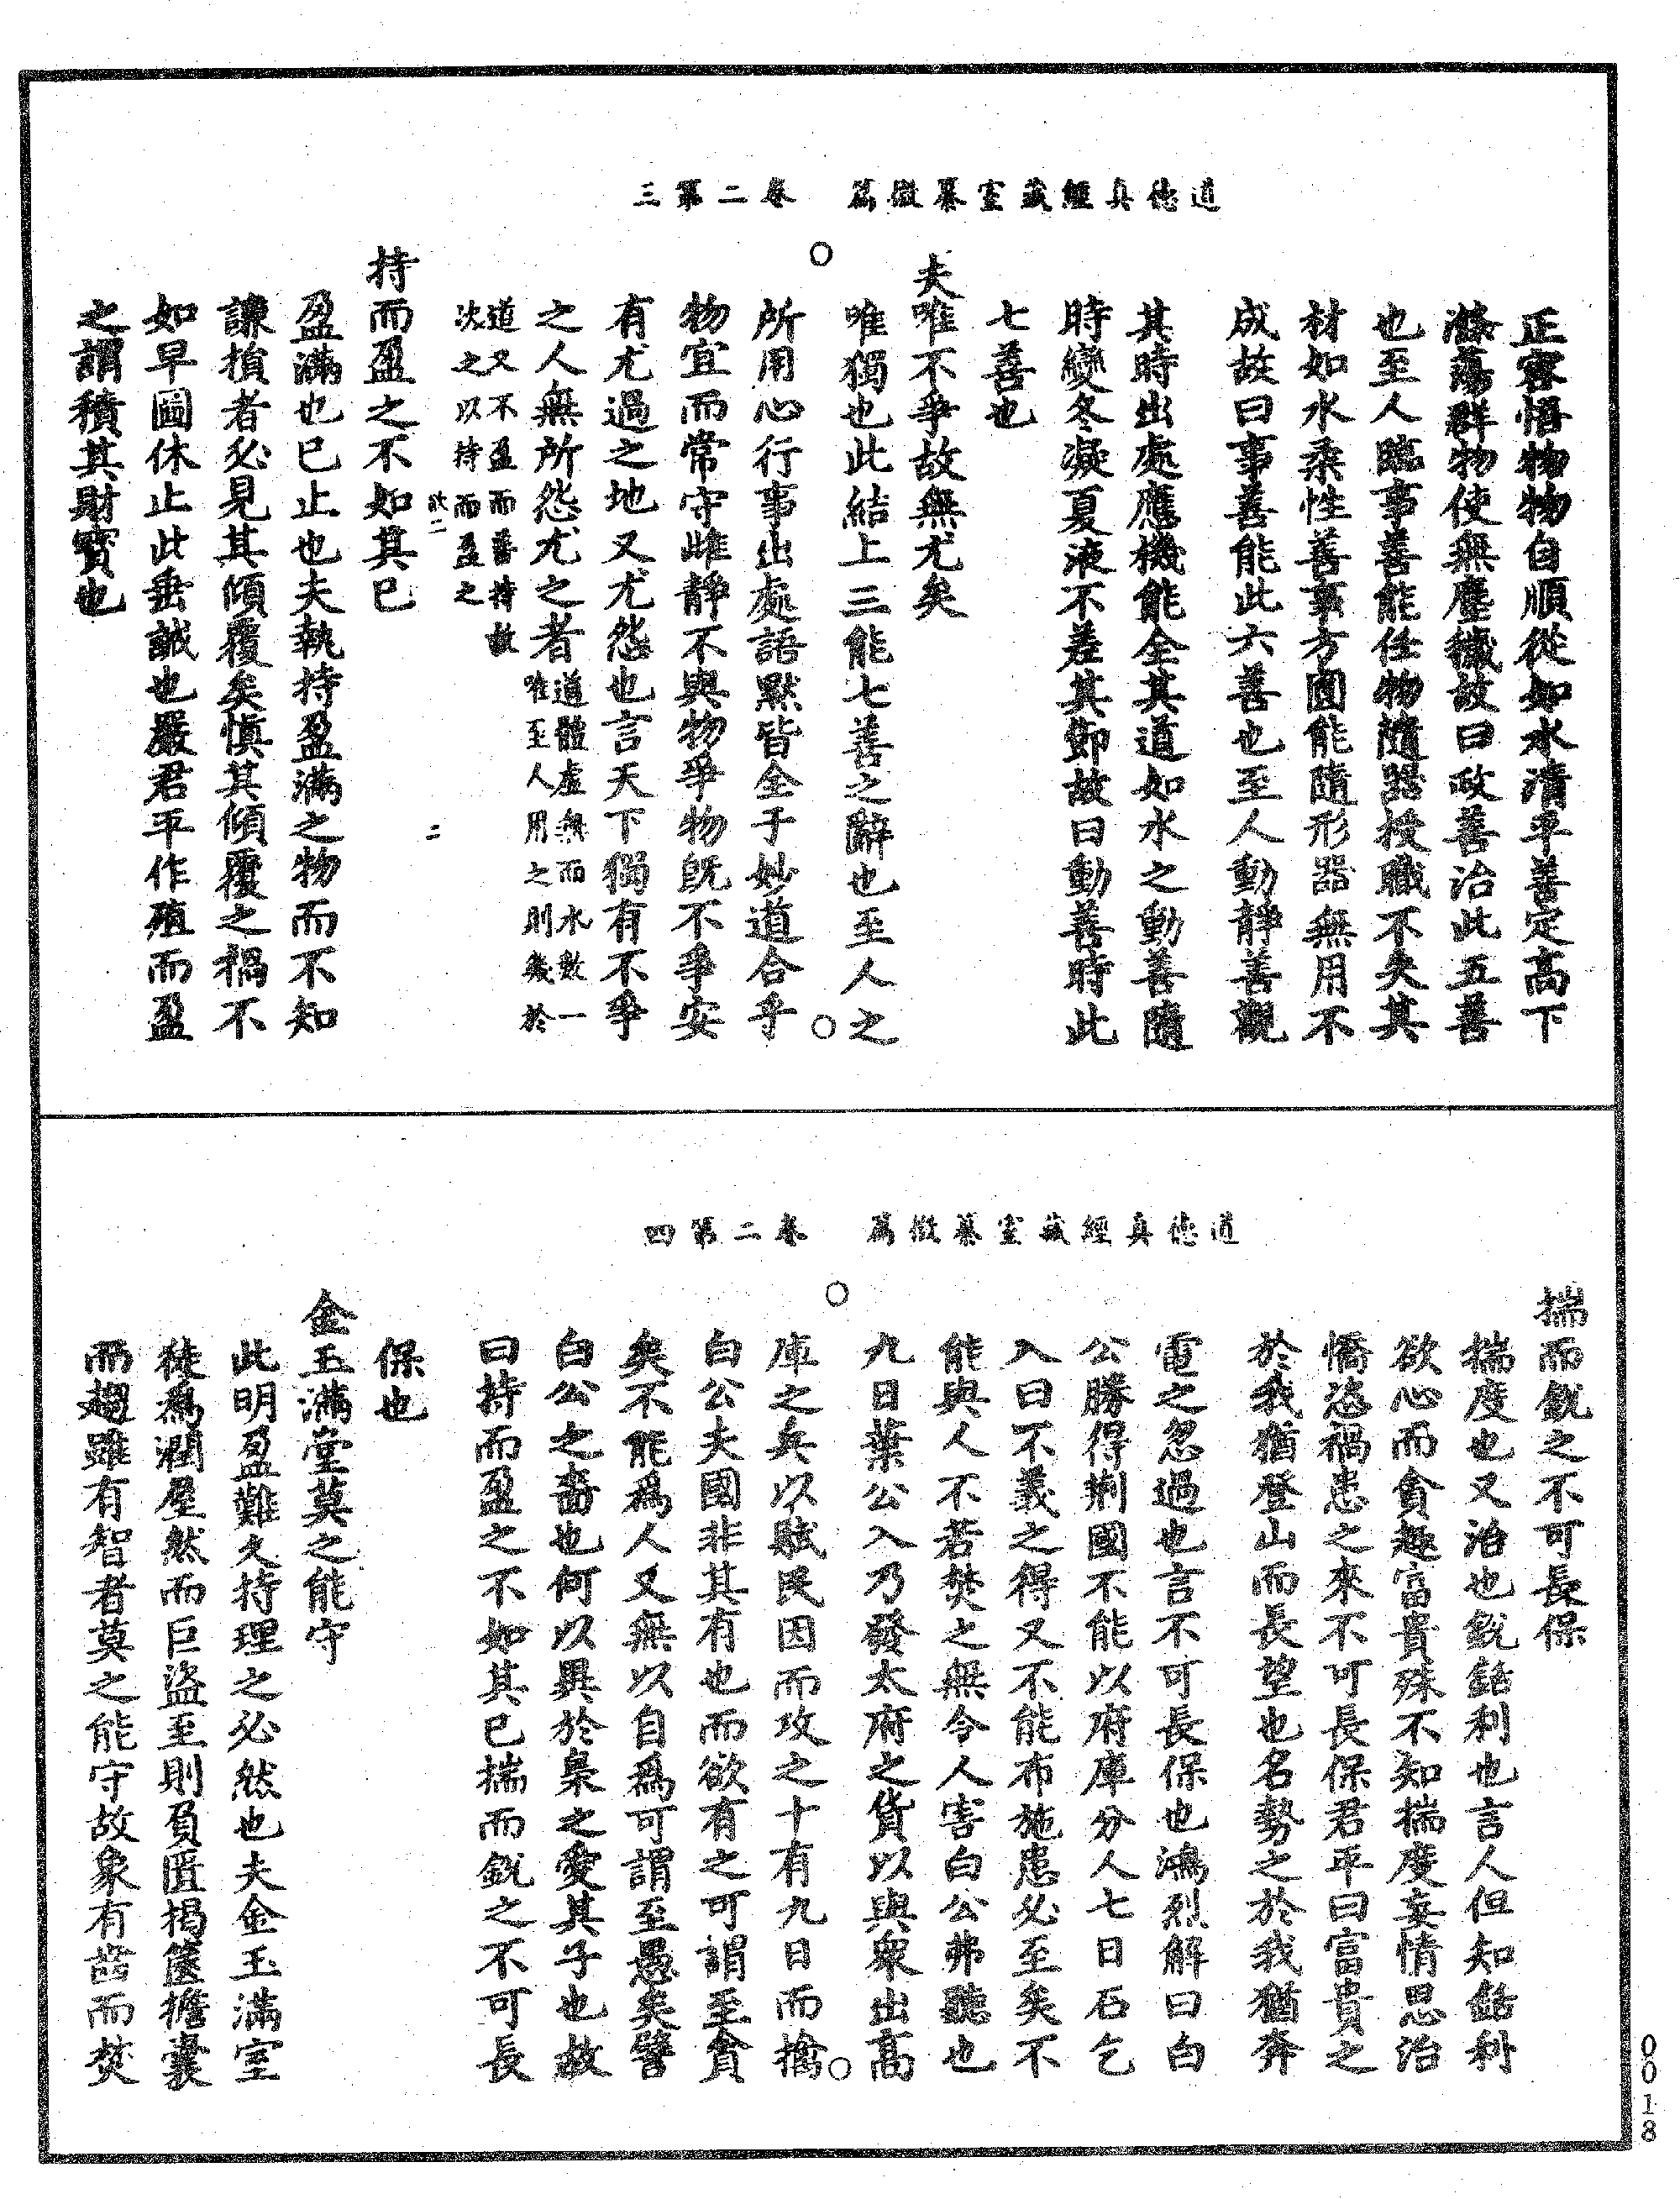 道德真經藏室纂微篇　卷二第三
正容悟物物自順從如水清平善定高下
滌蕩群物使無塵穢故曰政善治此五善
也至人臨事善能任物隨器授職不失其
材如水柔性善事方圓能隨形器無用不
成故曰事善能此六善也至人動靜善觀
其時出處應機能全其道如水之動善隨
時變冬凝夏液不差其節故曰動善時此
七善也
夫唯不爭故無尤矣
唯獨也此結上三能七善之辭也至人之
所用心行事出處語默皆全于妙道合乎
物宜而常守雌靜不與物爭物既不爭安
有尤過之地又尤怨也言天下獨有不爭
之人無所怨尤之者道體虛無而水數一
唯至人用之則幾於
道又不盈而善持故
次之以持而盈之
二
持而盈之不如其已
盈滿也已止也夫執持盈滿之物而不知
謙損者必見其傾覆矣慎其傾覆之禍不
如早圖休止此垂誡也嚴君平作殖而盈
之謂積其財寶也
道德真經藏室纂微篇　卷二第四
揣而銳之不可長保
揣度也又治也銳銛利也言人但知銛利
欲心而貪趣富貴殊不知揣度妄情思治
憍恣禍患之來不可長保君平曰富貴之
於我猶登山而長望也名勢之於我猶奔
電之忽過也言不可長保也鴻烈解曰白
公勝得荆國不能以府庫分人七日石乞
入曰不義之得又不能布施患必至矣不
能與人不若焚之無令人害白公弗聽也
九日葉公入乃發太府之貨以與衆出高
庫之兵以賦民因而攻之十有九日而擒
白公夫國非其有也而欲有之可謂至貪
矣不能爲人又無以自爲可謂至愚矣譬
白公之嗇也何以異於梟之愛其子也故
曰持而盈之不如其已揣而銳之不可長
保也
金玉滿堂莫之能守
此明盈難久持理之必然也夫金玉滿室
徒爲潤屋然而巨盜至則負匱揭篋擔囊
而趨雖有智者莫之能守故象有齒而焚
0018